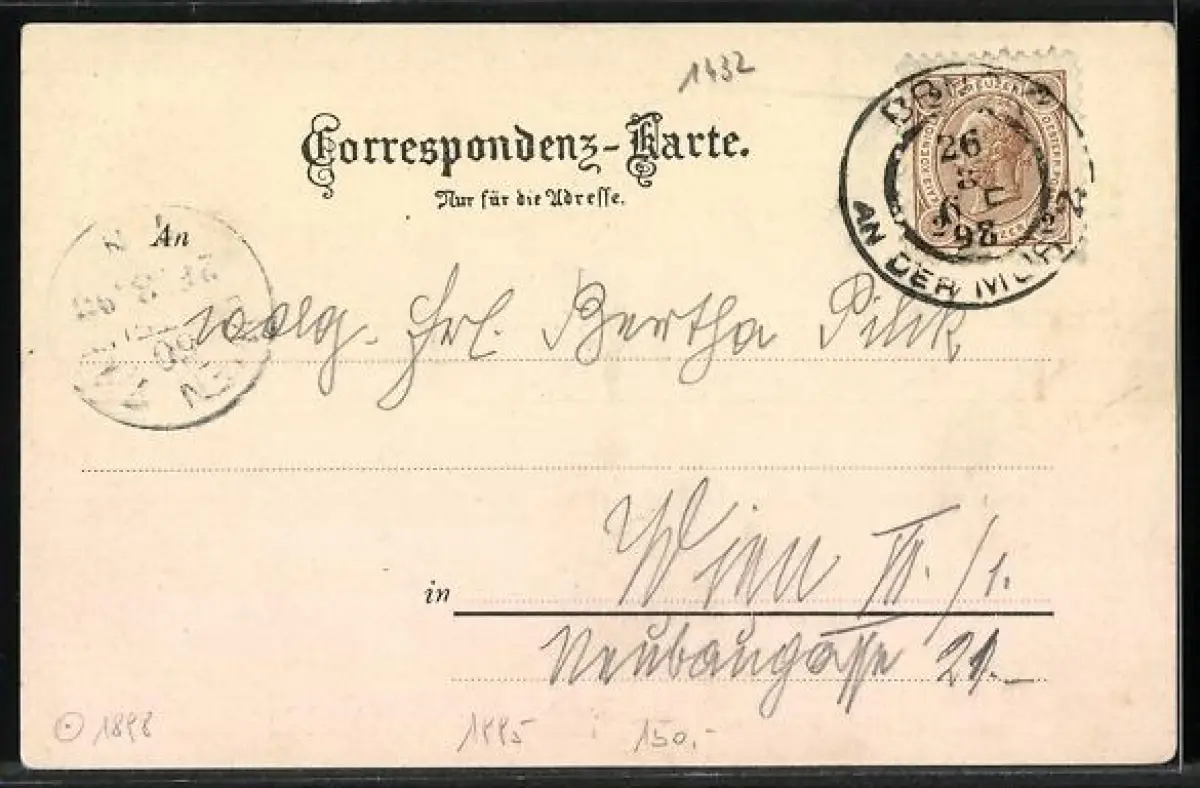 1432
Correspondenz-Karte.
Nur für die Adresse.
26
3
98
AN DER MUR
2 2
An
wolg. Frl. Bertha Pilik
in Wien VII./1.
Neubaugasse 21.
1898 1995 150,-